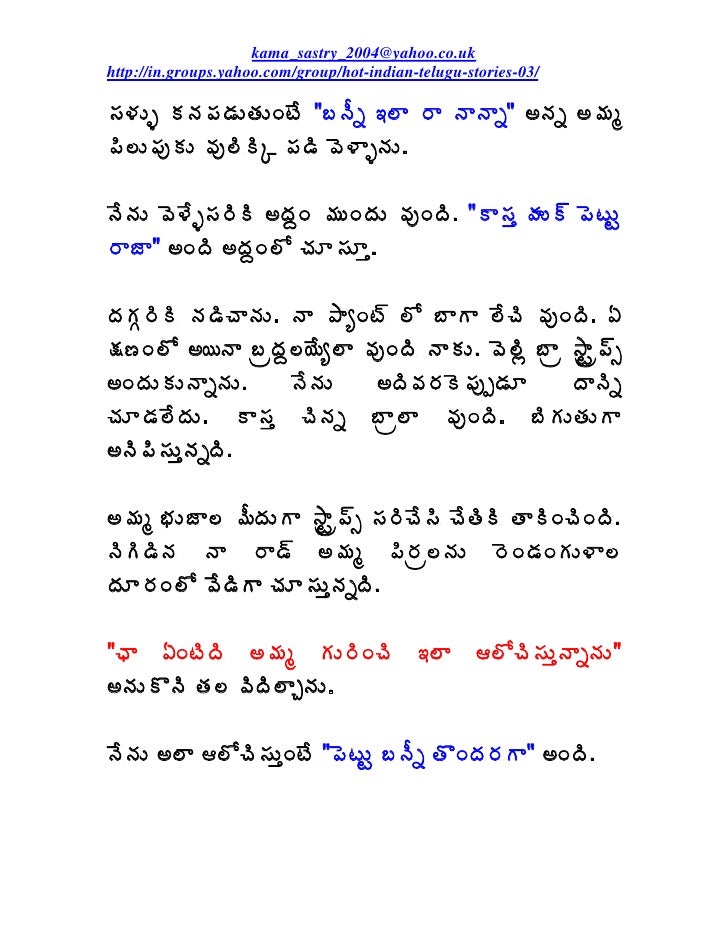 kama_sastry_2004@yahoo.co.uk
http://in.groups.yahoo.com/group/hot-indian-telugu-stories-03/
సళుృ కనపడుతుంటే "బన్నీ ఇలా రా నాన్నా" అన్న అమ్మ
పిలుపుకు వులిక్కి పడి వెళాృను.
నేను వెళేృసరికి అద్దం ముందు వుంది. "కాస్త హుక్ పెట్టు
రాజా" అంది అద్దంలో చూస్తూ.
దగ్గరికి నడిచాను. నా ప్యాంట్ లో బాగా లేచి వుంది. ఏ
క్షణంలో అయినా బ్రద్దలయ్యేలా వుంది నాకు. వెల్లి బ్రా స్ట్రాప్స్
అందుకున్నాను. నేను అదివరకెప్పుడూ దాన్ని
చూడలేదు. కాస్త చిన్న బ్రాలా వుంది. బిగుతుగా
అనిపిస్తున్నది.
అమ్మ భుజాల మీదుగా స్ట్రాప్స్ సరిచేసి చేతికి తాకించింది.
నిగిడిన నా రాడ్ అమ్మ పిర్రలను రెండంగుళాల
దూరంలో వేడిగా చూస్తున్నది.
"ఛా ఏంటిది అమ్మ గురించి ఇలా ఆలోచిస్తున్నాను"
అనుకొని తల విదిల్చాను.
నేను అలా ఆలోచిస్తుంటే "పెట్టు బన్నీ తొందరగా" అంది.